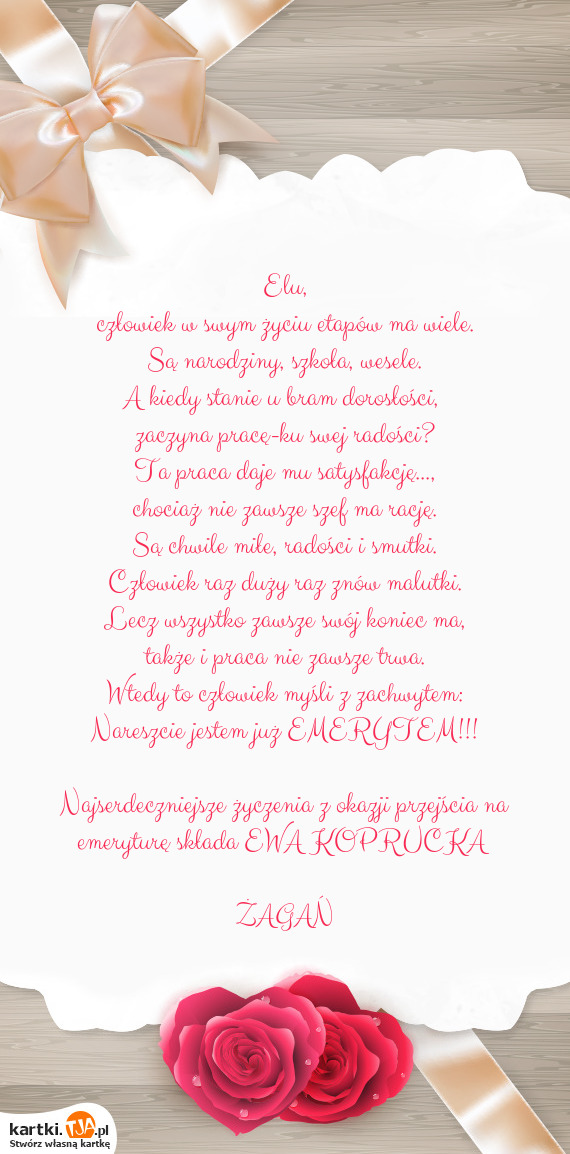 Elu,
człowiek w swym życiu etapów ma wiele.
Są narodziny, szkoła, wesele.
A kiedy stanie u bram dorosłości,
zaczyna pracę-ku swej radości?
Ta praca daje mu satysfakcję...,
chociaż nie zawsze szef ma rację.
Są chwile miłe, radości i smutki.
Człowiek raz duży raz znów malutki.
Lecz wszystko zawsze swój koniec ma,
także i praca nie zawsze trwa.
Wtedy to człowiek myśli z zachwytem:
Nareszcie jestem już EMERYTEM!!!
Najserdeczniejsze życzenia z okazji przejścia na
emeryturę składa EWA KOPRUCKA
ŻAGAŃ
kartki.TJA.pl
Stwórz własną kartkę